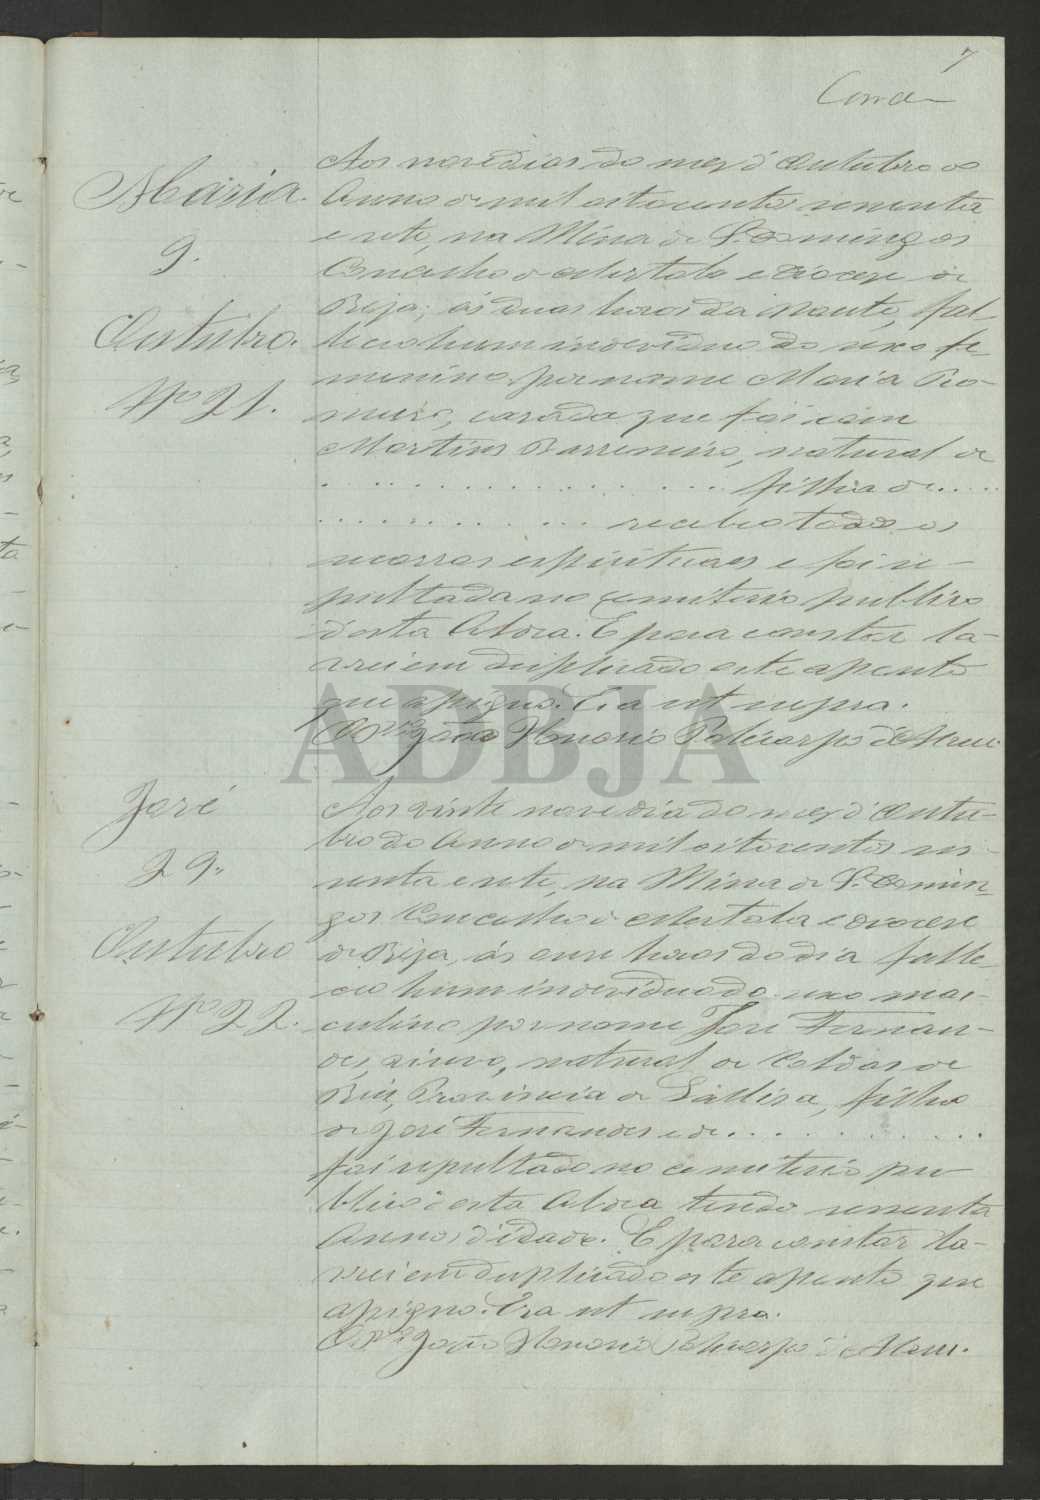 7
Maria.
9.
Outubro.
Nº 21.
Aos nove dias do mez d'Outubro do
Anno de mil oitocentos sessenta
e sete, na Mina de S. Domingos
Concelho de Mertola e Diocese de
Beja; ás duas horas da noute, fal-
leceo hum individuo do sexo fe
menino por nome Maria Ro-
meira, casada que foi com
Martins Barreneiro, natural de
. . . . . . . . . . . . . . . . filha de . . . . .
. . . . . . . . . . . . recebeo todos os
socorros espirituaes e foi se-
pultada no cemiterio publico
desta Aldea. E para constar la-
vrei em duplicado este assento
que assigno. Era ut supra.
O Pe. João Honorio Policarpo d'
José
29.
Outubro
Nº 22.
Aos vinte nove dia do mez d'Outu-
bro do Anno de mil oitocentos ses-
senta e sete, na Mina de S. Domin-
gos Concelho de Mertola e Diocese
de Beja, ás onze horas do dia falle-
ceo hum individuo do sexo mas-
culino por nome José Fernan-
des, viuvo, natural de Caldas de
Reis, Provincia de Galliza, filho
de José Fernandes e de . . . . . . . . . .
foi sepultado no cemiterio pu-
blico desta Aldea tendo sessenta
Annos d'idade. E para constar la-
vrei em duplicado este assento que
assigno. Era ut supra.
O Pe. João Honorio Policarpo d'
ADBJA